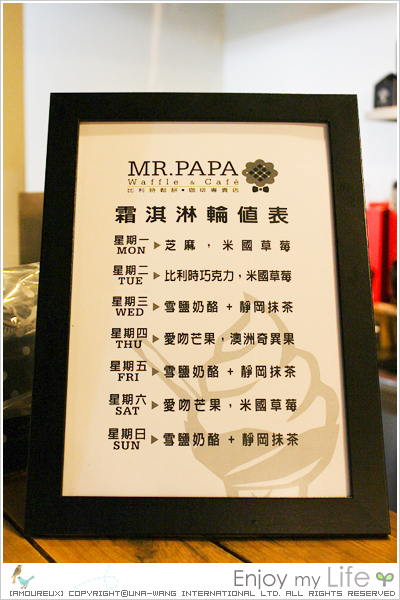 MR.PAPA
Waffle & Café
比利時鬆餅•咖啡專賣店
霜淇淋輪值表
星期一 MON ▶ 芝麻，米國草莓
星期二 TUE ▶ 比利時巧克力，米國草莓
星期三 WED ▶ 雪鹽奶酪 + 靜岡抹茶
星期四 THU ▶ 愛吻芒果，澳洲奇異果
星期五 FRI ▶ 雪鹽奶酪 + 靜岡抹茶
星期六 SAT ▶ 愛吻芒果，米國草莓
星期日 SUN ▶ 雪鹽奶酪 + 靜岡抹茶
Enjoy my Life
[AMOUREUX] COPYRIGHT©UNA-WANG INTERNATIONAL LTD. ALL RIGHTS RESERVED